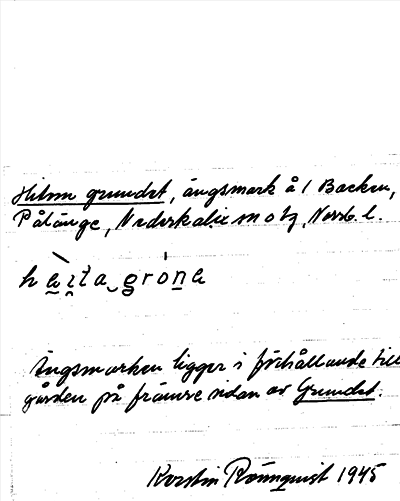 Hitom grundet, ängsmark å 1 Backen,
Pålänge, Nederkalix sn o tg, Norrb. l.
hai̯ta grona
Ängsmarken ligger i förhållande till
gården på främre sidan av Grundet.
Kerstin Rönnquist 1945